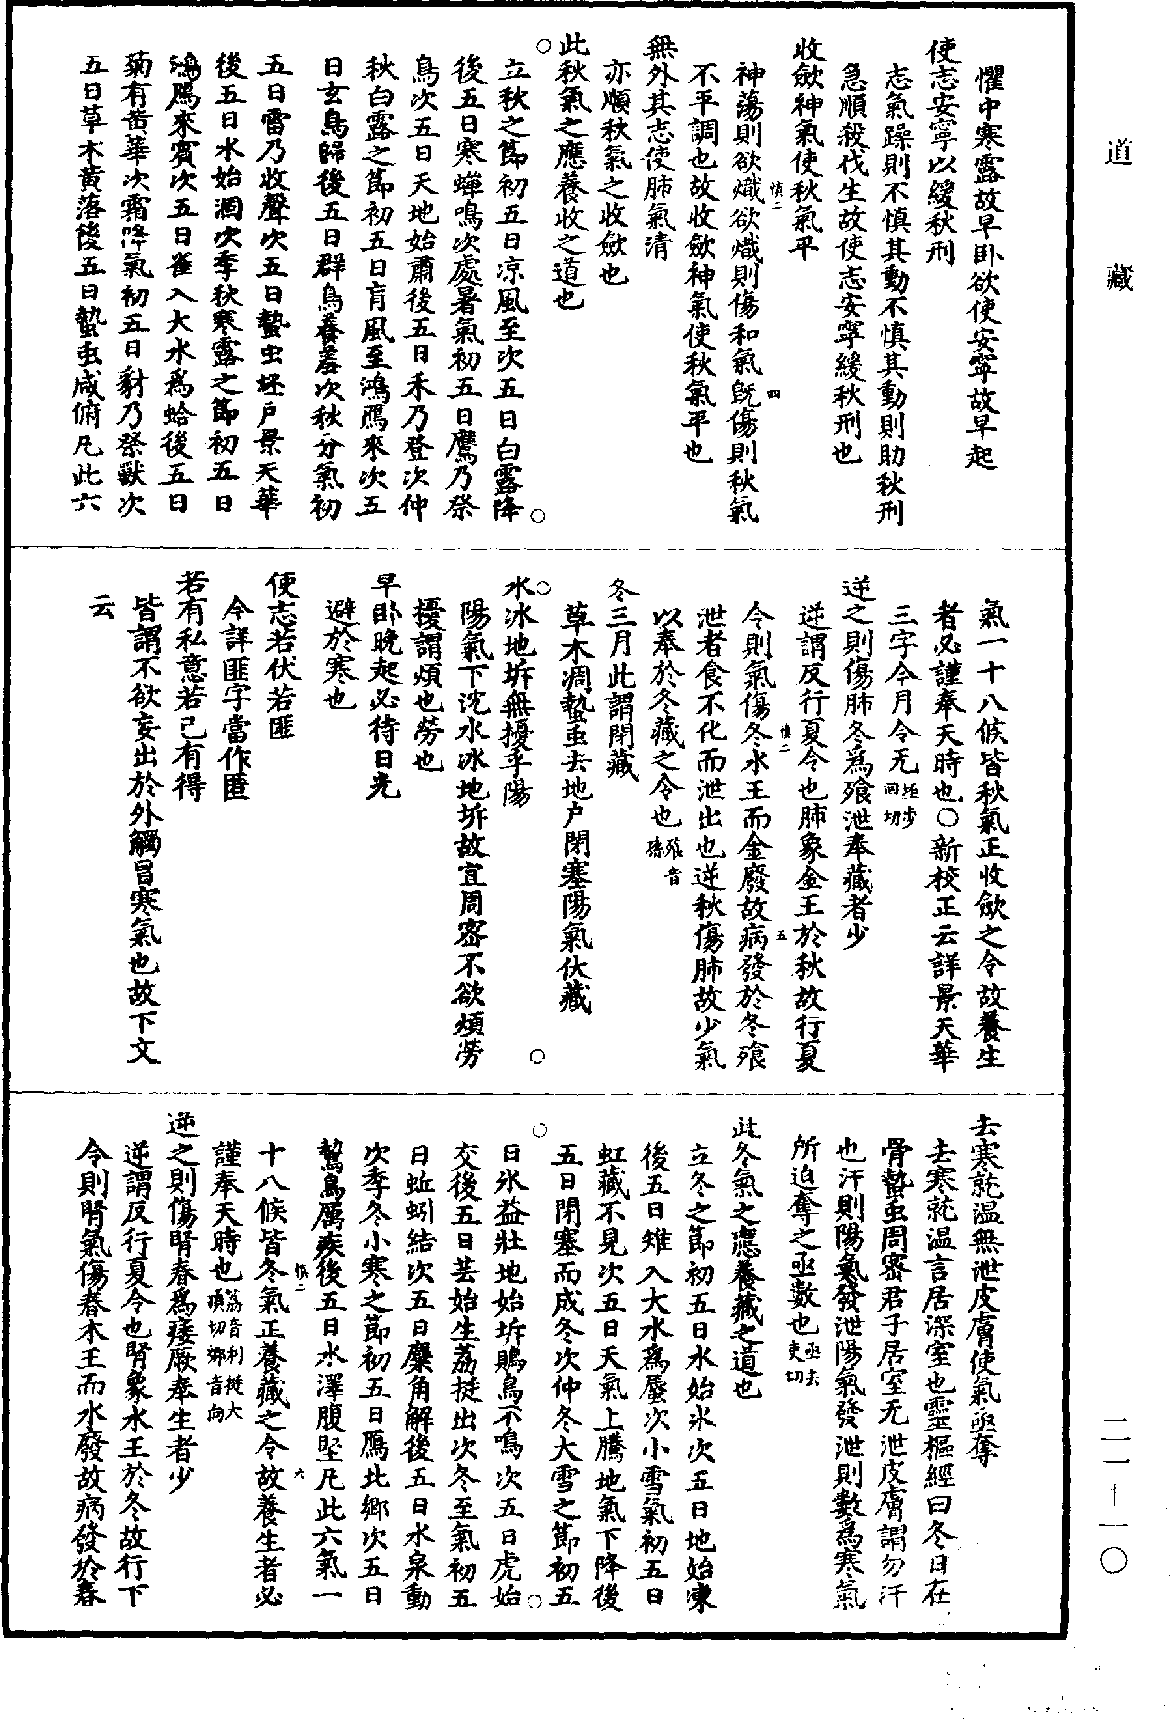 道藏
懼中寒露故早卧欲使安寧故早起
使志安寧以緩秋刑
志氣躁則不慎其動不慎其動則助秋刑
急順殺伐生故使志安寧緩秋刑也
收歛神氣使秋氣平
神蕩則欲熾欲熾則傷和氣旣傷則秋氣
慎二
四
不平調也故收歛神氣使秋氣平也
無外其志使肺氣清
亦順秋氣之收歛也
此秋氣之應養收之道也
立秋之節初五日凉風至次五日白露降
後五日寒蟬鳴次處暑氣初五日鷹乃祭
鳥次五日天地始肅後五日禾乃登次仲
秋白露之節初五日肓風至鴻鴈來次五
日玄鳥歸後五日群鳥養羞次秋分氣初
五日雷乃收聲次五日蟄虫坯户景天華
後五日水始涸次季秋寒露之節初五日
鴻鴈來賓次五日雀入大水爲蛤後五日
菊有黃華次霜降氣初五日豺乃祭獸次
五日草木黃落後五日蟄虫咸俯凡此六
氣一十八候皆秋氣正收歛之令故養生
者必謹奉天時也○新校正云詳景天華
三字今月令无坯步回切
逆之則傷肺冬爲飱泄奉藏者少
逆謂反行夏令也肺象金王於秋故行夏
慎二
五
令則氣傷冬水王而金廢故病發於冬飱
泄者食不化而泄出也逆秋傷肺故少氣
以奉於冬藏之令也飱音
冬三月此謂閉藏
草木凋蟄虫去地户閉塞陽氣伏藏
水冰地坼無擾乎陽
陽氣下沈水冰地坼故宜周密不欲煩勞
擾謂煩也勞也
早卧晚起必待日光
避於寒也
使志若伏若匪
今詳匪字當作匿
若有私意若已有得
皆謂不欲妄出於外觸冒寒氣也故下文
云
去寒就温無泄皮膚使氣亟奪
去寒就温言居深室也靈樞經曰冬日在
骨蟄虫周密君子居室无泄皮膚謂勿汗
也汗則陽氣發泄陽氣發泄則數爲寒氣
所迫奪之亟數也亟去吏切
此冬氣之應養藏之道也
立冬之節初五日水始氷次五日地始凍
後五日雉入大水爲蜃次小雪氣初五日
虹藏不見次五日天氣上騰地氣下降後
五日閉塞而成冬次仲冬大雪之節初五
日氷益壯地始坼鶡鳥不鳴次五日虎始
交後五日芸始生荔挺出次冬至氣初五
日蚯蚓結次五日麋角解後五日水泉動
次季冬小寒之節初五日鴈北鄉次五日
鷙鳥厲疾後五日水澤腹堅凡此六氣一
慎二
六
十八候皆冬氣正養藏之令故養生者必
謹奉天時也荔音利挺大頂切鄉音向
逆之則傷腎春爲痿厥奉生者少
逆謂反行夏令也腎象水王於冬故行下
令則腎氣傷春木王而水廢故病發於春
二一—一〇